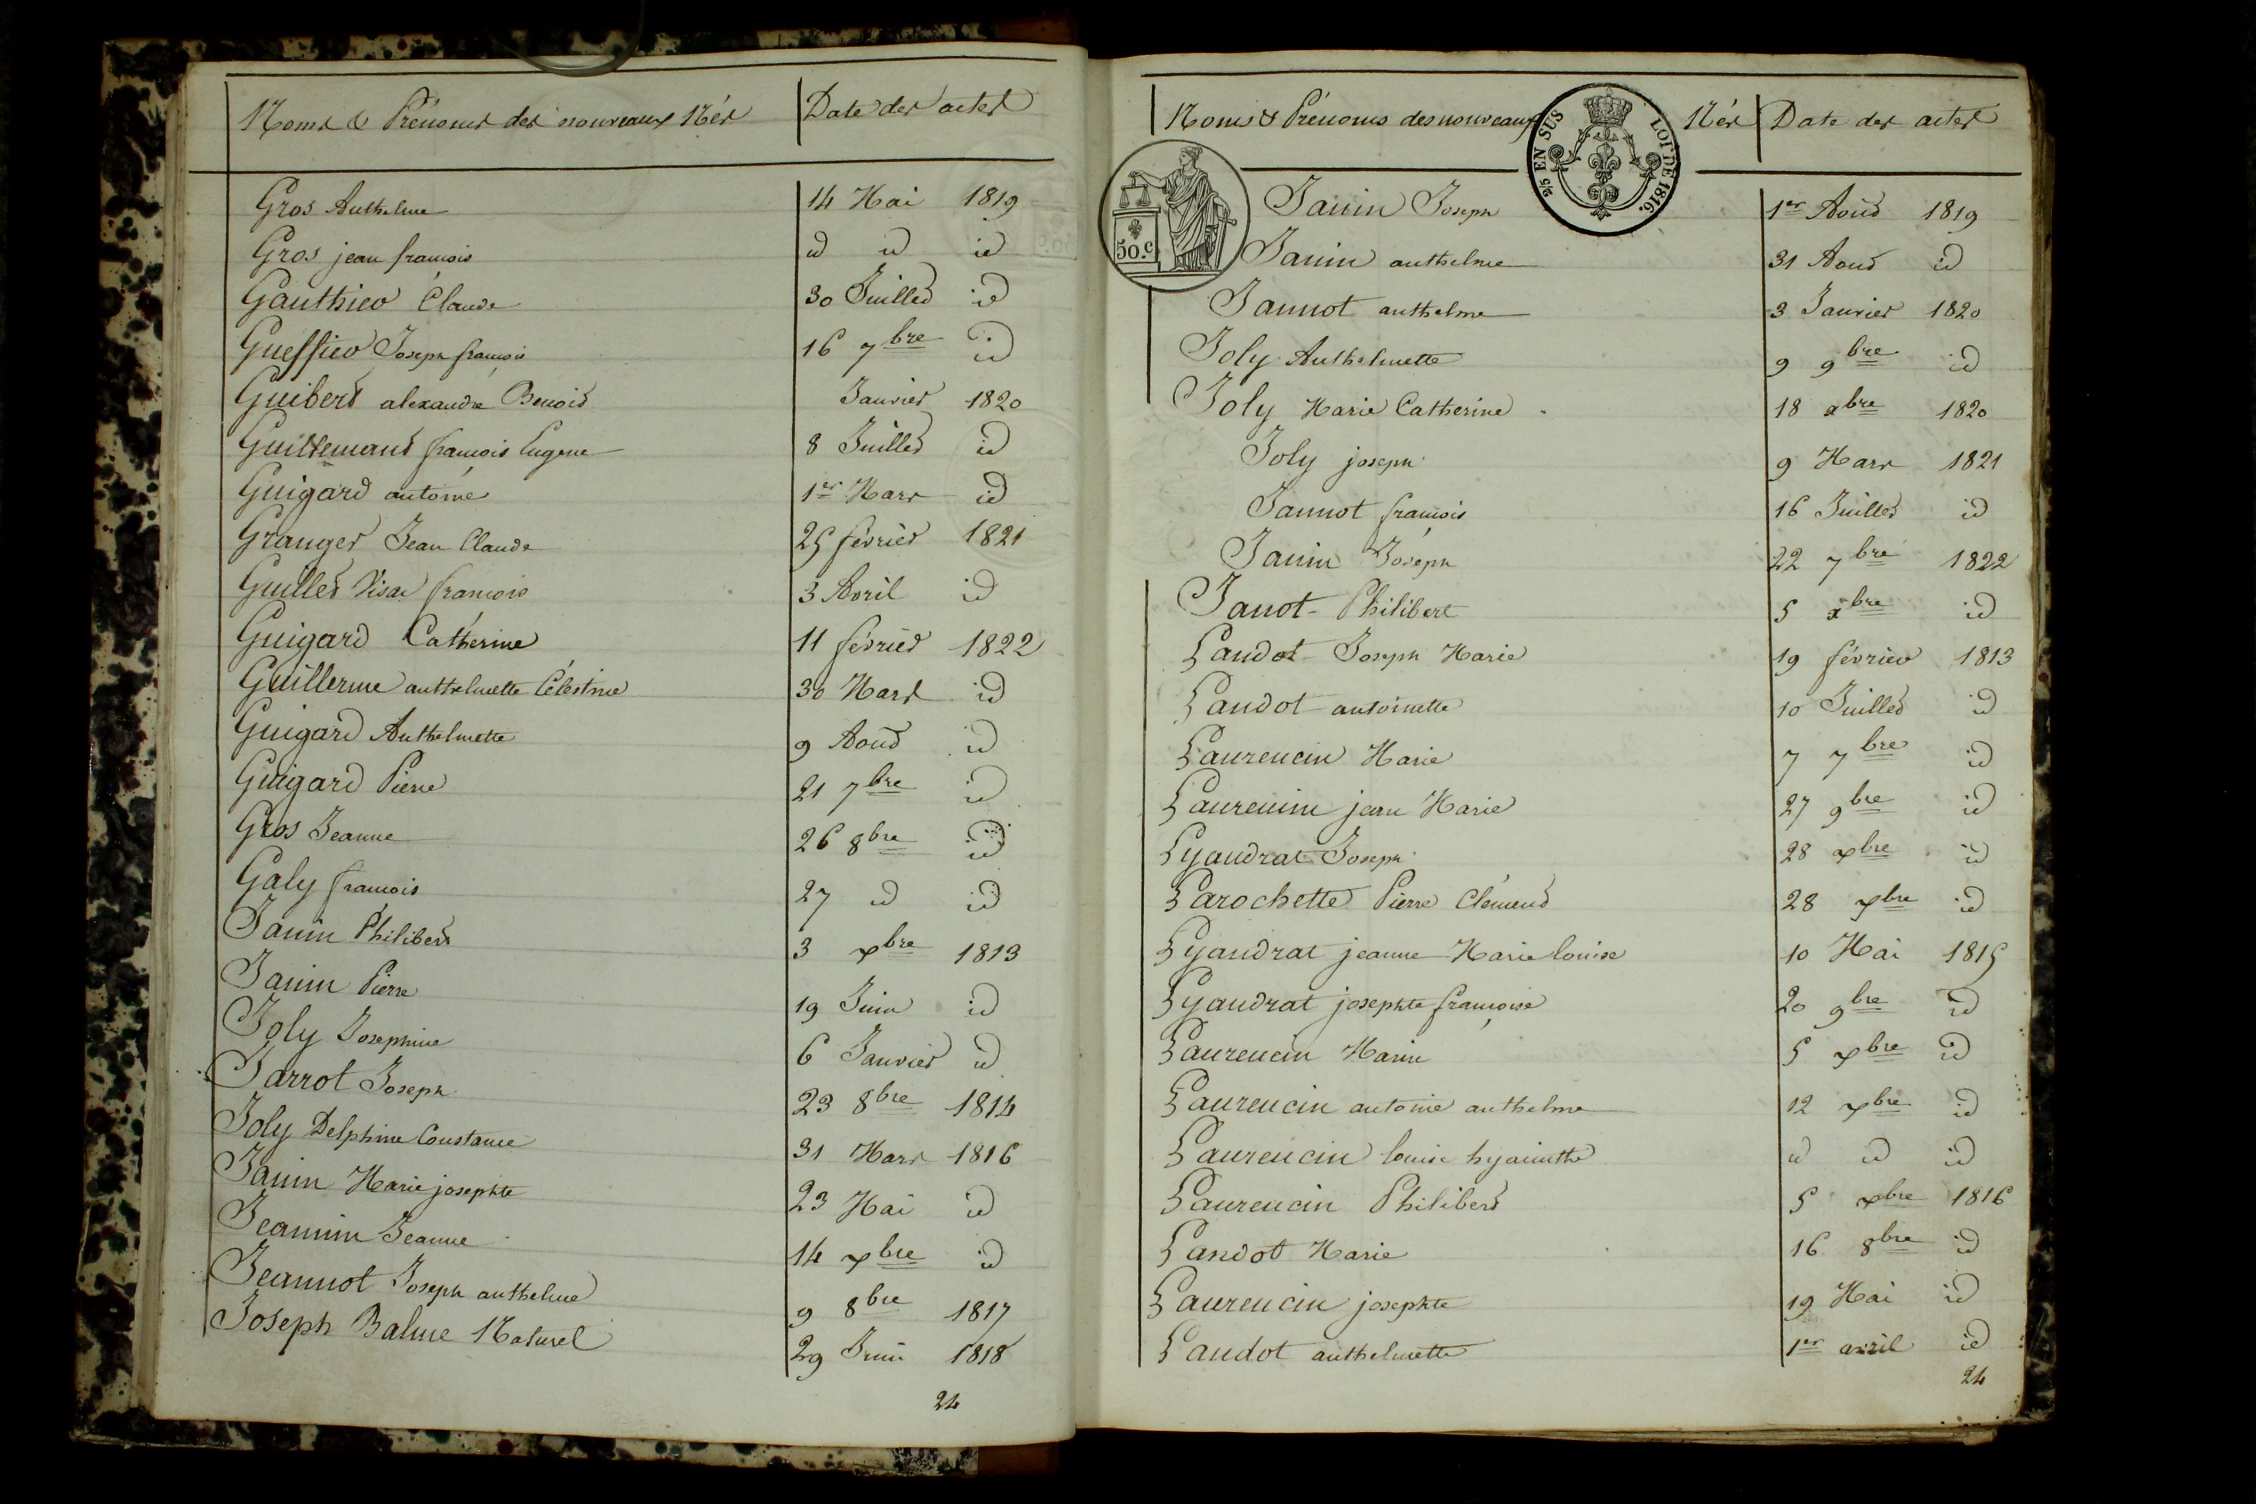 Noms & Prénoms des nouveaux Nés Date des actes
Gros Anthelme 14 Mai 1819
Gros jean francois id id id
Gauthier Claude 30 Juillet id
Gueffier Joseph françois 16 7bre id
Guibert alexandre Benoit Janvier 1820
Guillemant françois Eugene 8 Juillet id
Guigard antoine 1er Mars id
Granger Jean Claude 25 février 1821
Guillet françois 3 Avril id
Guigard Catherine 11 février 1822
Guillerme anthelmette Célestine 30 Mars id
Guigard Anthelmette 9 Aout id
Guigard Pierre 21 7bre id
Gros Jeanne 26 8bre id
Galy francois 27 id id
Janin Philibert 3 xbre 1813
Janin Pierre 19 Juin id
Joly Josephine 6 Janvier id
Jarrot Joseph 23 8bre 1814
Joly Delphine Constance 31 Mars 1816
Janin Marie josephte 23 Mai id
Jeannin Jeanne 14 xbre id
Jeannot Joseph anthelme 9 8bre 1817
Joseph Balme Naturel 29 Juin 1818
24
Noms & Prénoms des nouveaux Nés Date des actes
2/5 EN SUS LOI DE 1816.
50.c
Janin Joseph 1er Aout 1819
Janin anthelme 31 Aout id
Jannot anthelme 3 Janvier 1820
Joly Anthelmette 9 9bre id
Joly Marie Catherine 18 xbre 1820
Joly joseph 9 Mars 1821
Jannot françois 16 Juillet id
Janin Joseph 22 7bre 1822
Janot Philibert 5 xbre id
Landot Joseph Marie 19 février 1813
Landot antoinette 10 Juillet id
Laurencin Marie 7 7bre id
Laurencin jean Marie 27 9bre id
Lyandrat Joseph 28 xbre id
Larochette Pierre Clément 28 xbre id
Lyandrat jeanne Marie louise 10 Mai 1815
Lyandrat josephte françoise 20 9bre id
Laurencin Marie 5 xbre id
Laurencin antoine anthelme 12 xbre id
Laurencin louise hyacinthe id id id
Laurencin Philibert 5 xbre 1816
Landot Marie 16 8bre id
Laurencin josephte 19 Mai id
Landot anthelmette 1er avril id
24